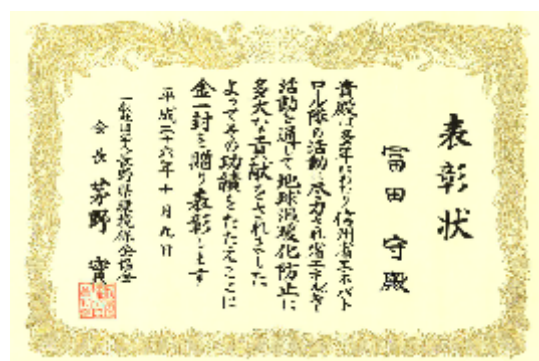 表彰状
富田 守殿
貴殿は多年にわたり信州省エネパト
ロール隊の活動に尽力され省エネルギー
活動を通して地球温暖化防止に
多大な貢献をされました
よってその功績をたたえここに
金一封を贈り表彰します
平成二十六年十月九日
一般社団法人長野県環境保全協会
会長 茅野 實